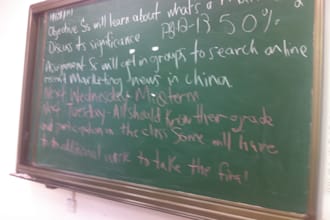 Objective Ss will learn about what's a
Discuss its significance P812-13 50%
Assignment Ss will get in groups to search online
recent Marketing news in china
Next Wednesday - Midterm
Next Tuesday - All should know their grade
and participation in the class Some will have
to do additional work to take the final